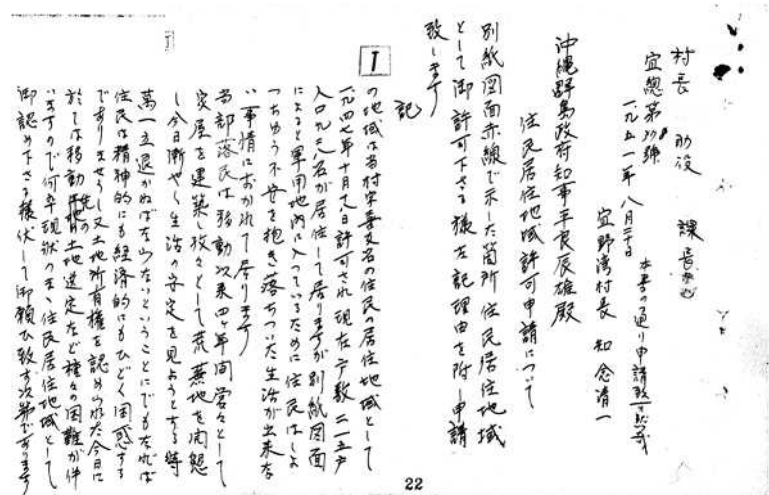 村長 助役 課長
本書の通り申請致
宜総第 號
一九五一年八月二十日
宜野湾村長 知念清一
沖縄群島政府知事平良辰雄殿
住民居住地域許可申請について
別紙図面赤線で示した箇所住民居住地域
として御許可下さる様左記理由を附し申請
致します
記
I
の地域は当村字喜友名の住民の居住地域として
一九四七年十月 日許可され現在戸数二一五戸
人口九三八名が居住して居りますが別紙図面
によると軍用地内に入っているために住民はしょ
っちゅう不安を抱き落ちついた生活が出来な
い事情におかれて居ります
当部落民は移動以来四ヶ年間営々として
家屋を建築し孜々として荒蕪地を開懇
し今日漸やく生活の安定を見ようとする時
萬一立退かねばならないということにでもなれば
住民は精神的にも経済的にもひどく困惑する
でありませうし又土地所有権を認められた今日に
於ては移動先の土地選定など種々の困難が伴
いますので何卒現状のまゝ住民居住地域として
御認め下さる様伏して御願ひ致す次第であります
22